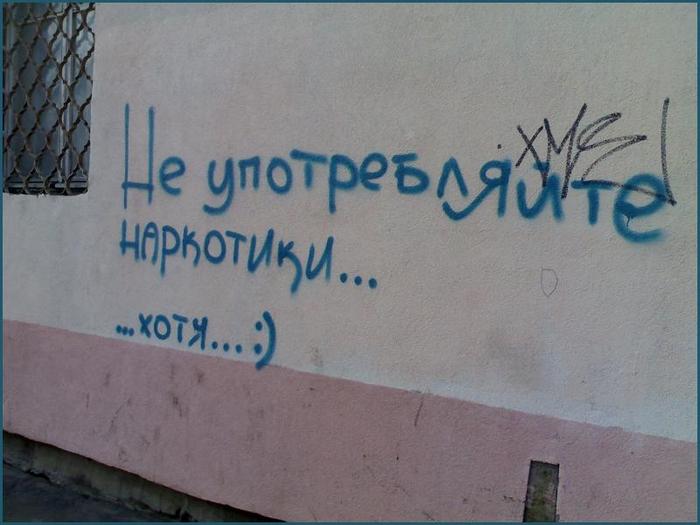 Не употребляйте
наркотики...
...хотя... :)